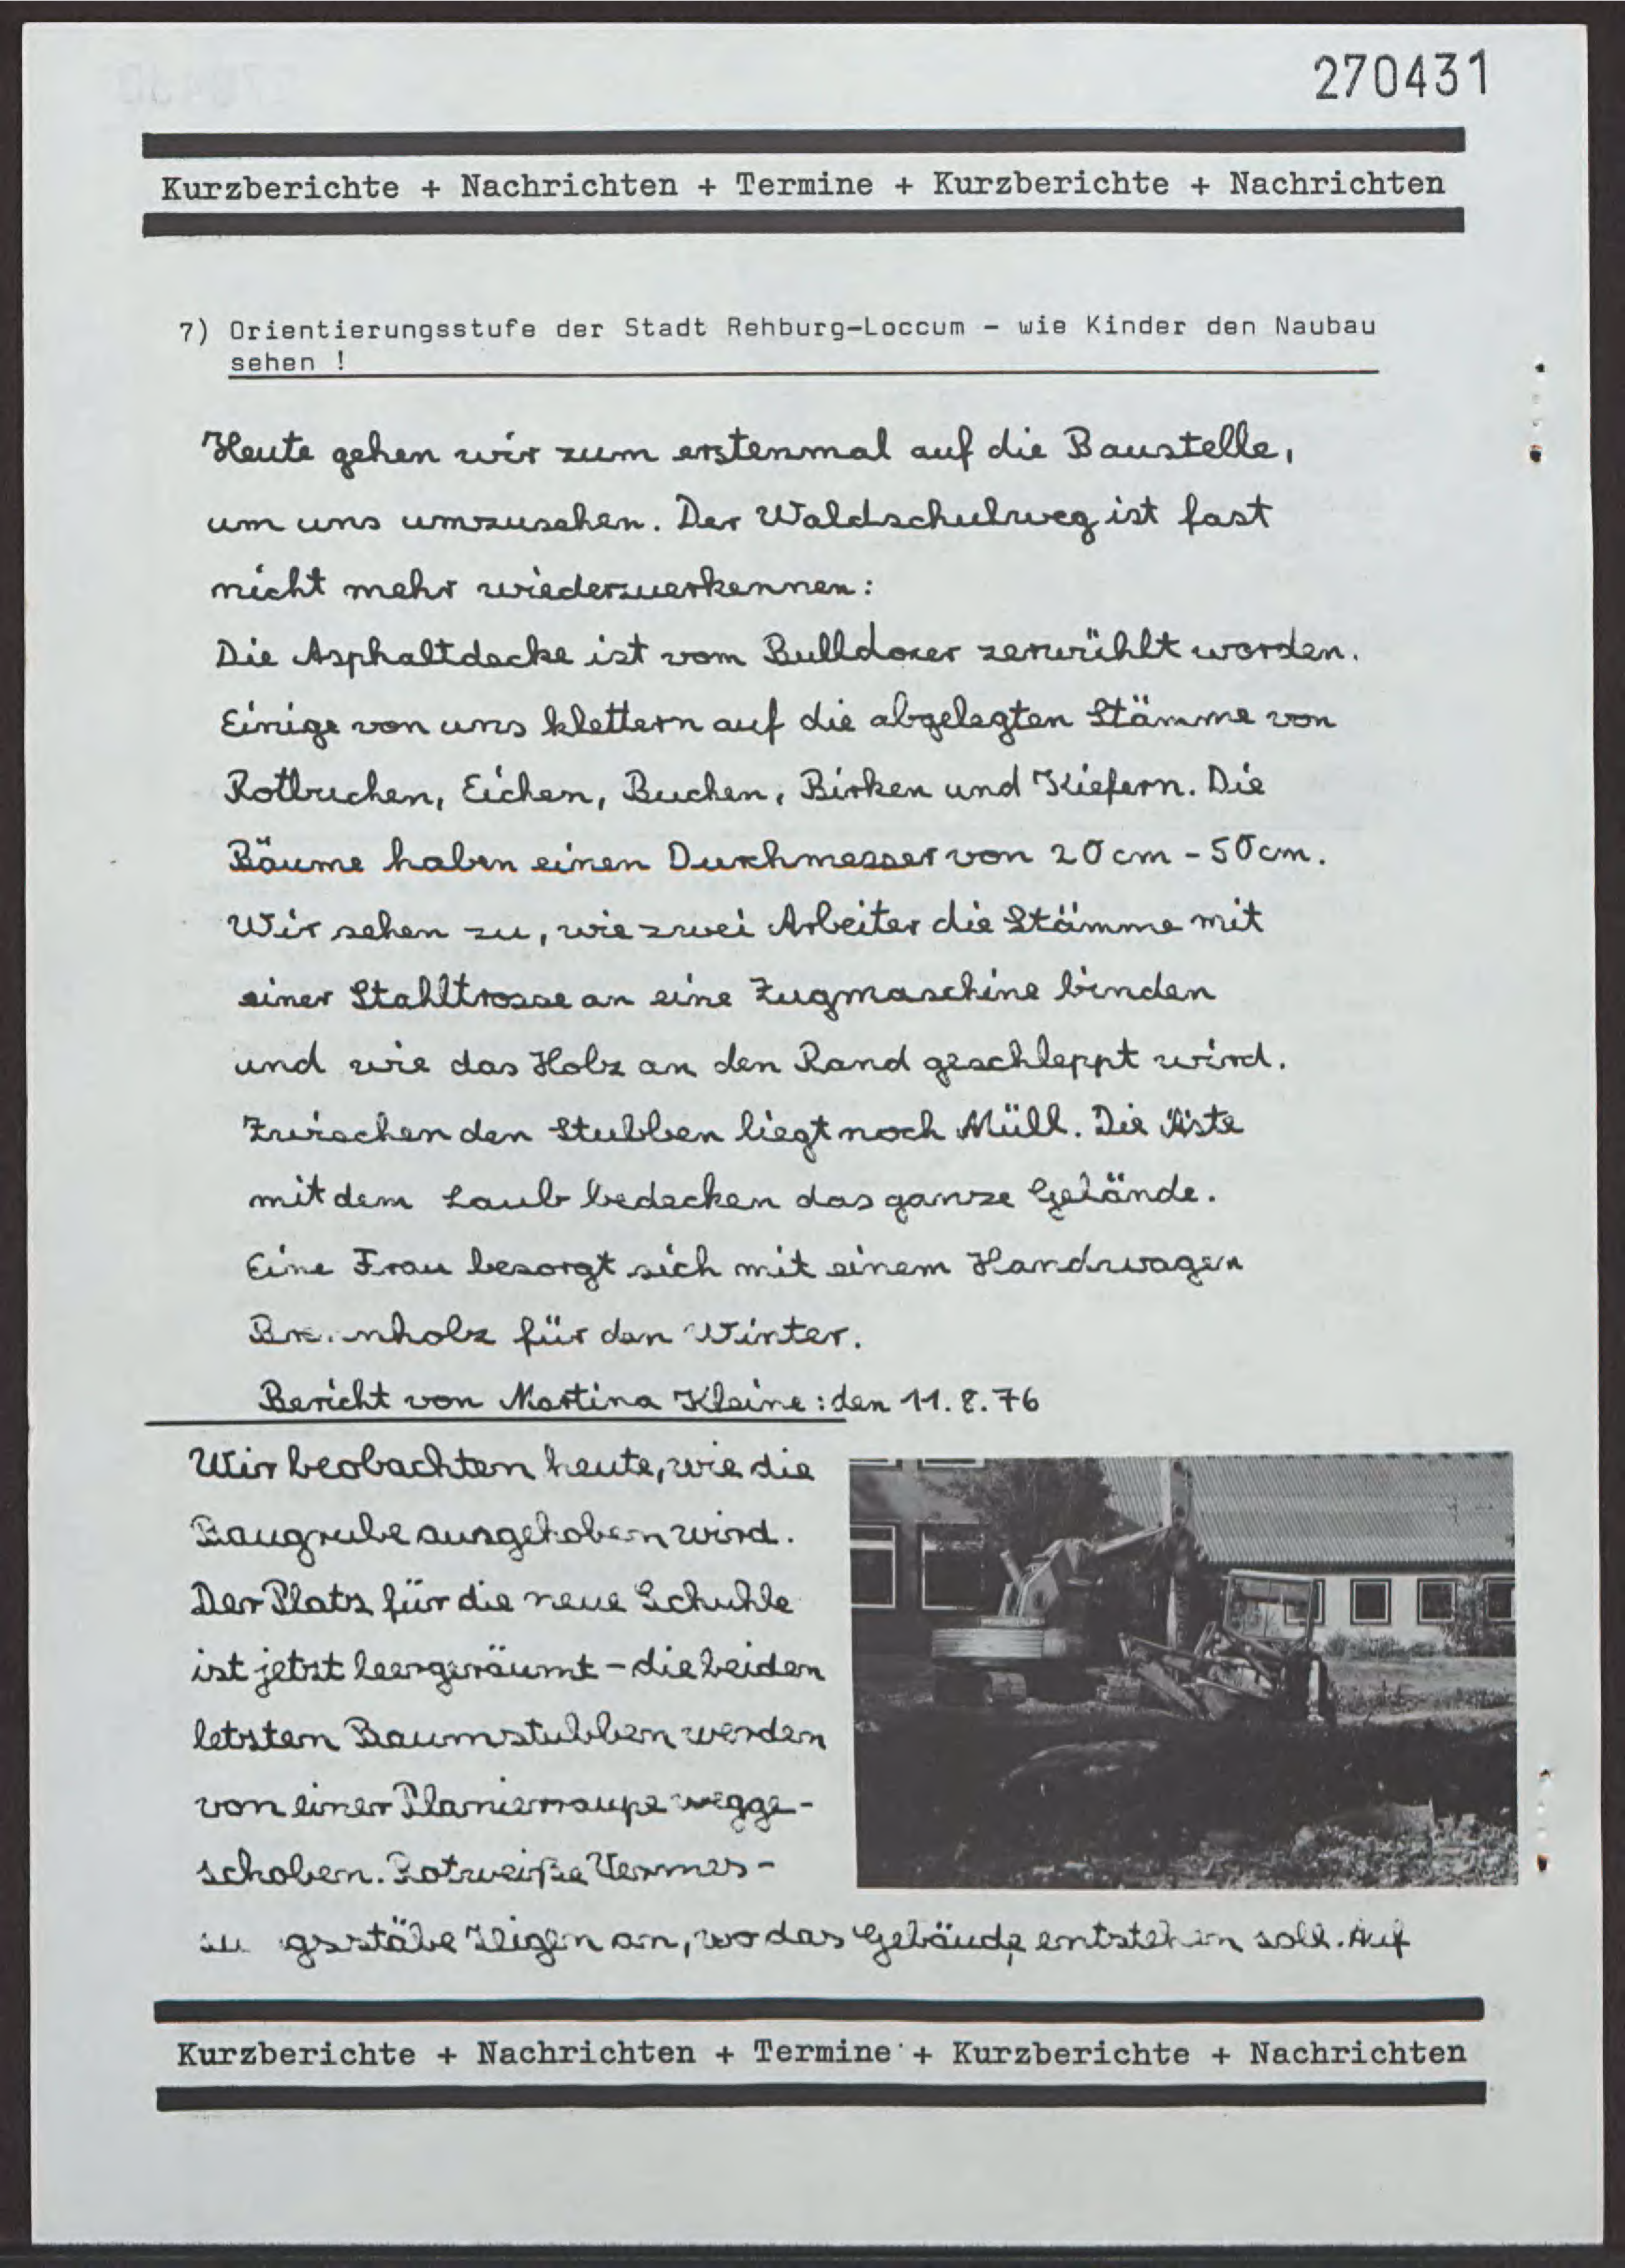 270431
Kurzberichte + Nachrichten + Termine + Kurzberichte + Nachrichten
7) Orientierungsstufe der Stadt Rehburg-Loccum - wie Kinder den Naubau
sehen !
Heute gehen wir zum erstenmal auf die Baustelle,
um uns umzusehen. Der Waldschulweg ist fast
nicht mehr wiederzuerkennen:
Die Asphaltdecke ist vom Bulldozer zerwühlt worden.
Einige von uns klettern auf die abgelegten Stämme von
Rotbuchen, Eichen, Buchen, Birken und Kiefern. Die
Bäume haben einen Durchmesser von 20 cm - 50 cm.
Wir sehen zu, wie zwei Arbeiter die Stämme mit
einer Stahltrosse an eine Zugmaschine binden
und wie das Holz an den Rand geschleppt wird.
Zwischen den Stubben liegt noch Müll. Die Äste
mit dem Laub bedecken das ganze Gelände.
Eine Frau besorgt sich mit einem Handwagen
für den Winter.
Bericht von Martina Kleine: den 11.8.76
Wir beobachten heute, wie die
Baugrube ausgehoben wird.
Der Platz für die neue Schuhle
ist jetzt leergeräumt - die beiden
letzten Baumstubben werden
von einer Planierraupe wegge-
schoben. Rotweiße Vermes-
zeigen an, wo das Gebäude entstehen soll. Auf
Kurzberichte + Nachrichten + Termine + Kurzberichte + Nachrichten